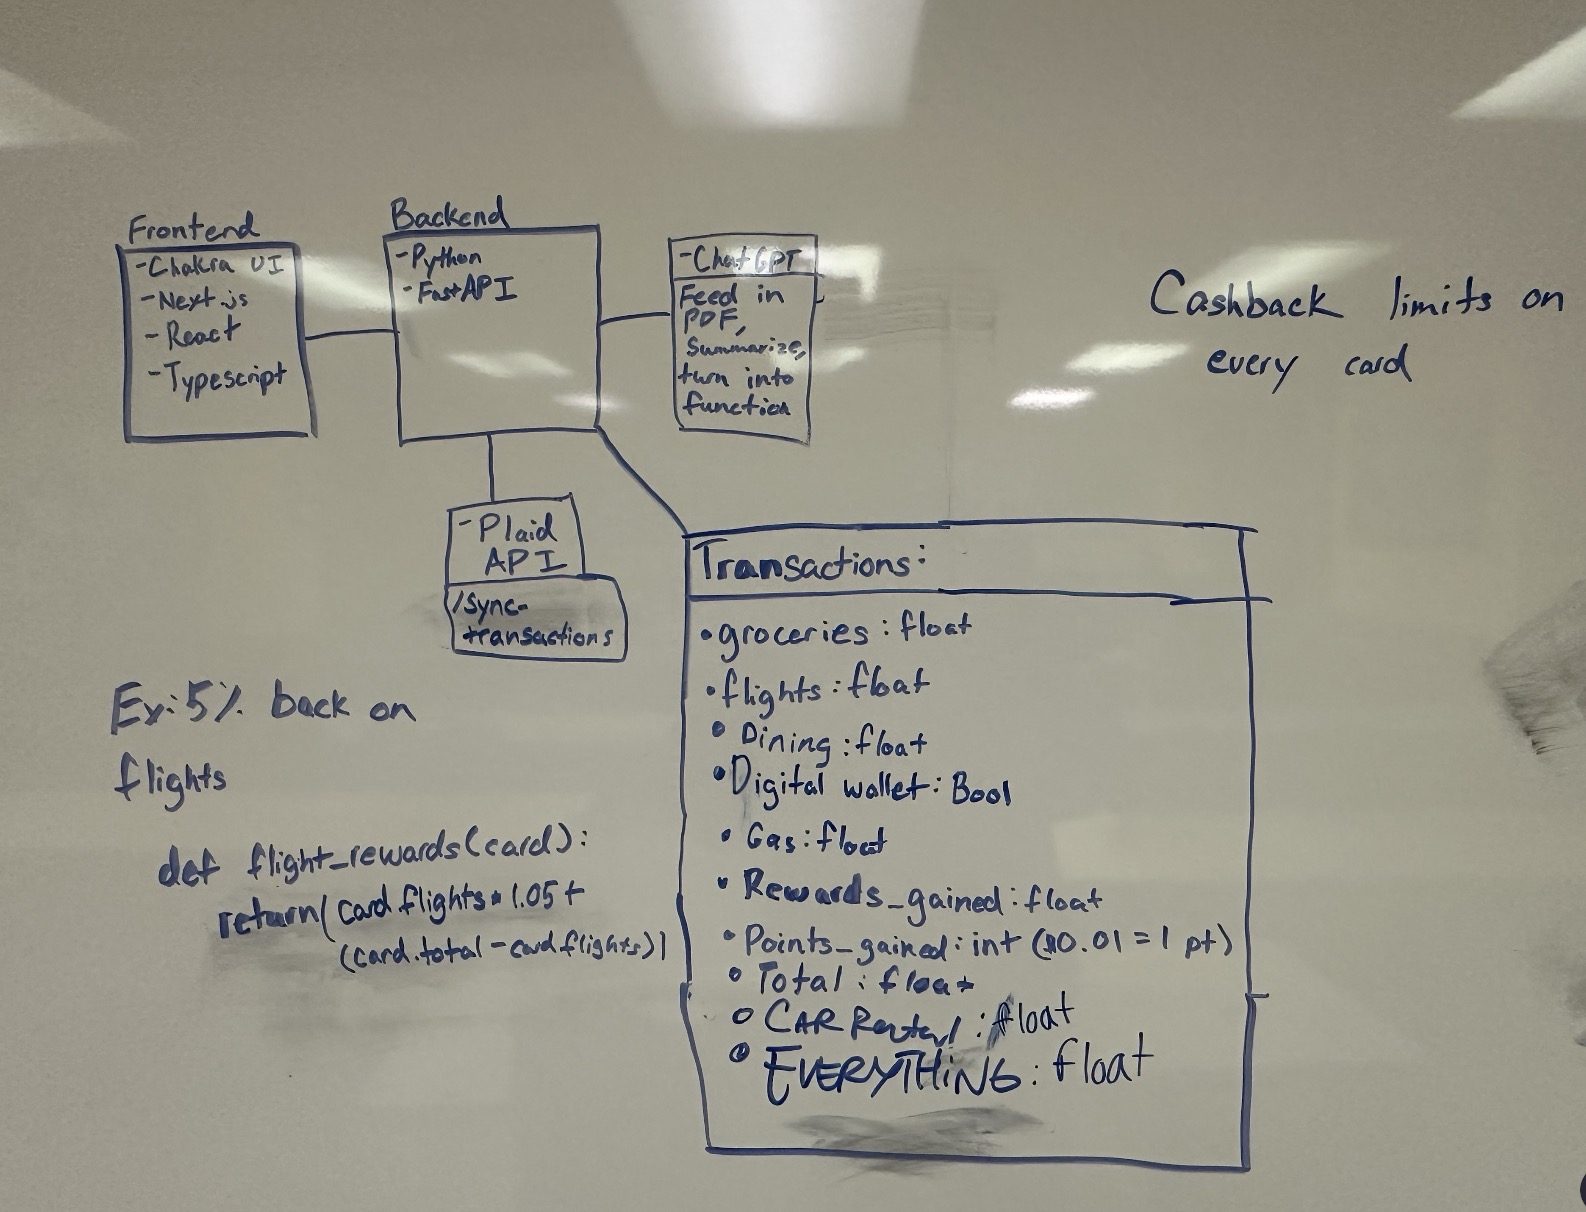 Frontend
-Chakra UI
-Next.js
-React
-Typescript
Backend
-Python
-FastAPI
-ChatGPT
Feed in
PDF,
Summarize,
turn into
function
Cashback limits on
every card
-Plaid
API
/Sync-
transactions
Ex: 5% back on
flights
def flight_rewards(card):
return(card.flights * 1.05 +
(card.total - card.flights))
Transactions:
• groceries: float
• flights: float
• Dining: float
• Digital wallet: Bool
• Gas: float
• Rewards_gained: float
• Points_gained: int ($0.01 = 1 pt)
• Total: float
• CAR Rental: float
• EVERYTHiNG: float